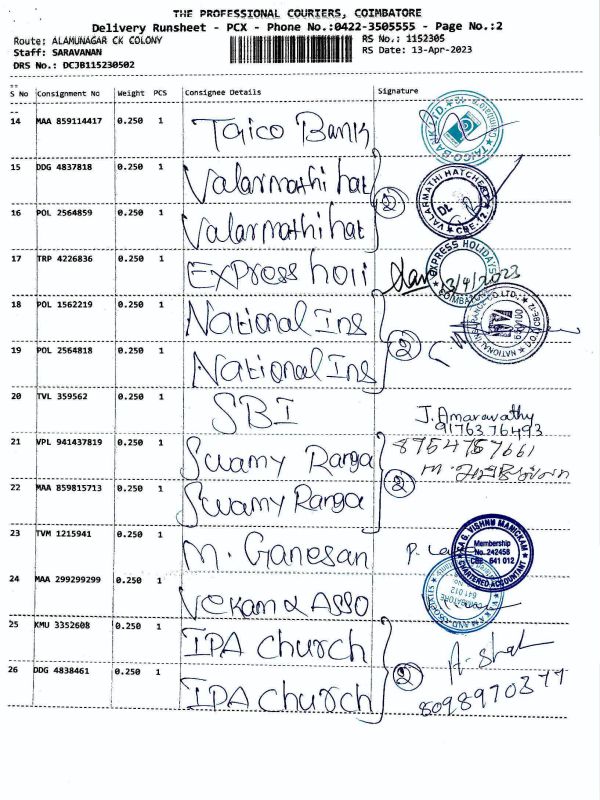 THE PROFESSIONAL COURIERS, COIMBATORE
Delivery Runsheet - PCX - Phone No.:0422-3505555 - Page No.:2
Route: ALAMUNAGAR CK COLONY
RS No.: 1152305
Staff: SARAVANAN
RS Date: 13-Apr-2023
DRS No.: DCJB115230502
S No Consignment No Weight PCS Consignee Details Signature
14 MAA 859114417 0.250 1 Taico Bank
TAICO BANK LTD.
15 DDG 4837818 0.250 1 Valarmathi hat
VALARMATHI HATCHERI
CBE-12
16 POL 2564859 0.250 1 Valarmathi hat
2
17 TRP 4226836 0.250 1 Express holi
EXPRESS HOLIDAYS
COIMBATORE
13/4/2023
18 POL 1562219 0.250 1 National Ins
NATIONAL INSURANCE CO. LTD.
19 POL 2564818 0.250 1 National Ins
2
20 TVL 359562 0.250 1 SBI
J. Amaravathy
9176376493
21 VPL 941437819 0.250 1 Swamy Ranga
8754757661
22 MAA 859815713 0.250 1 Swamy Ranga
2
23 TVM 1215941 0.250 1 M. Ganesan
CA G. VISHNU MANICKAM
Membership
No.242458
CBE - 641 012
CHARTERED ACCOUNTANT
24 MAA 299299299 0.250 1 Vekam & Asso
COIMBATORE
641 012
25 KMU 3352608 0.250 1 IPA church
A. Shah
26 DDG 4838461 0.250 1 IPA church
2
8098970377